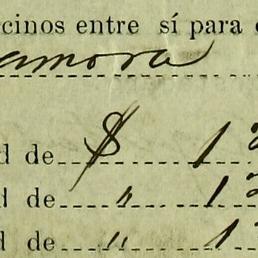 cinos entre sí para
amora
d de $ 1
d de " 1
d de " 1